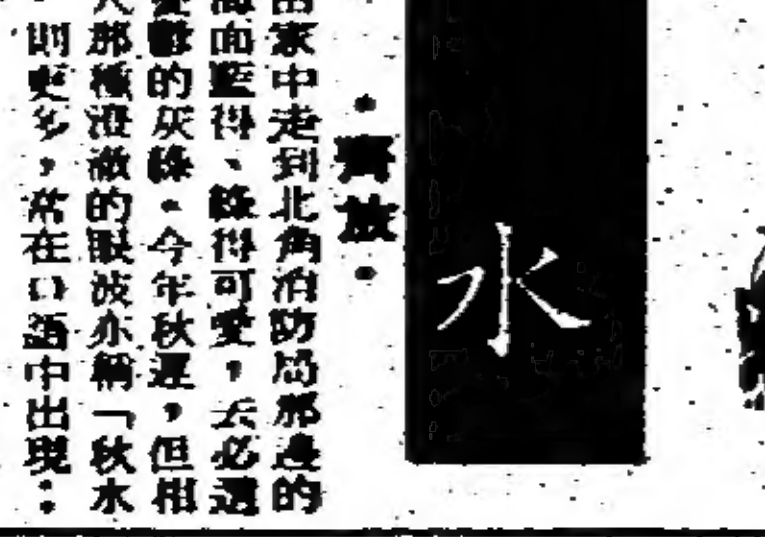 水
·齊放·
家中走到北角消防局那邊的
面藍得、綠得可愛，
的灰綠。今年秋遲，但相
那種澄澈的眼波亦稱「秋水
則更多，常在口語中出現：